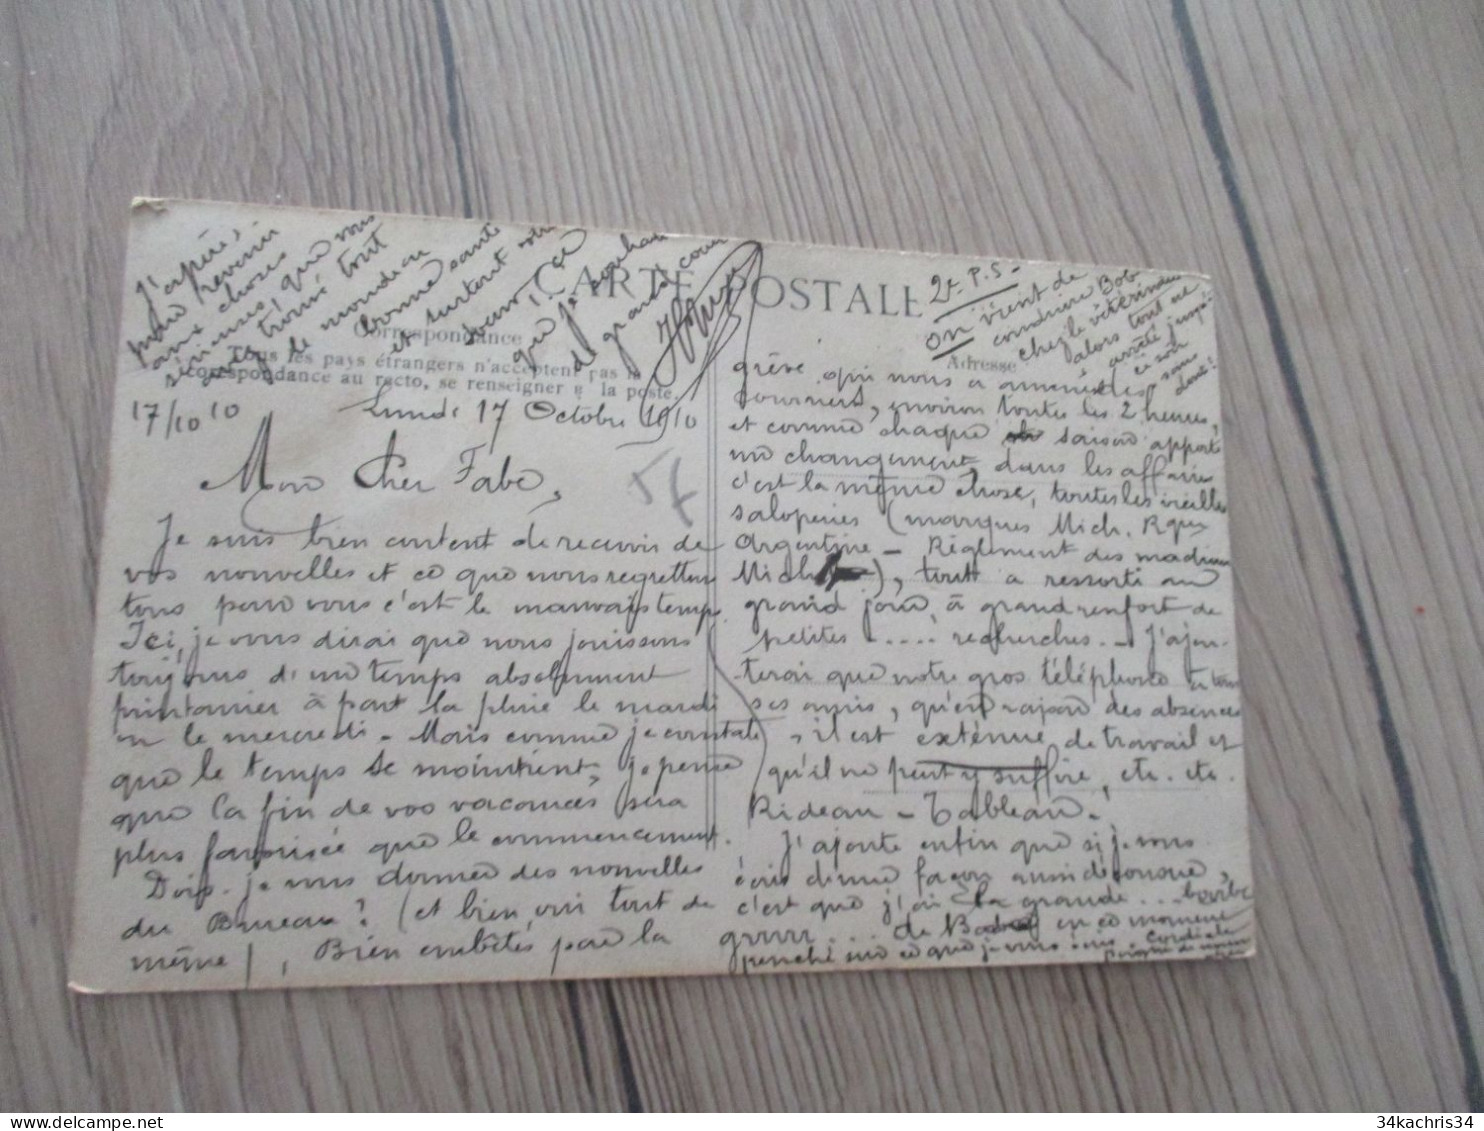 CARTE POSTALE
Correspondance
Tous les pays étrangers n'acceptent pas la
correspondance au recto, se renseigner à la poste.
Adresse
17/10 10
Lundi 17 Octobre 1910
Mon Cher Fabe,
Je suis bien content de recevoir de
vos nouvelles et ce que nous regrettons
tous pour vous c'est le mauvais temps.
Ici, je vous dirai que nous jouissons
toujours d'un temps absolument
printanier à part la pluie le mardi
ou le mercredi - Mais comme je constate
que le temps se maintient, je pense
que la fin de vos vacances sera
plus favorisée que le commencement.
Dois-je vous donner des nouvelles
du Bureau? (et bien, oui tout de
même), Bien embêtés par la
grève qui nous a amené les
journées, environ toutes les 2 heures,
et comme chaque saison apporte
un changement, dans les affaires
c'est la même chose, toutes les vieilles
saloperies (marques Mich. Rques
Argentine - Règlement des
Mich), tout a ressorti au
grand jour à grand renfort de
petites ..... recherches. - J'ajou-
terai que notre gros téléphone et tous
ses amis, qu'en rajson des absences
, il est exténué de travail et
qu'il ne peut y suffire, etc. etc.
Rideau - Tableau.
J'ajoute enfin que si je vous
écris d'une façon aussi décousue,
c'est que j'ai la grande ... barbe
grrrr... de en ce moment
penché sur ce que je vous Cordiale
poignée de main
J'espère,
pour revenir
aux choses
sérieuses, que vous
trouvé tout
le monde en
bonne santé
et surtout votre
, ce
que je souhaite
de grand cœur
2e P.S.-
On vient de
conduire Bob
chez le vétérinaire
alors tout ne
arrêté jusqu'
ce soir
sans
doute!
34kachris34
delcampe.net